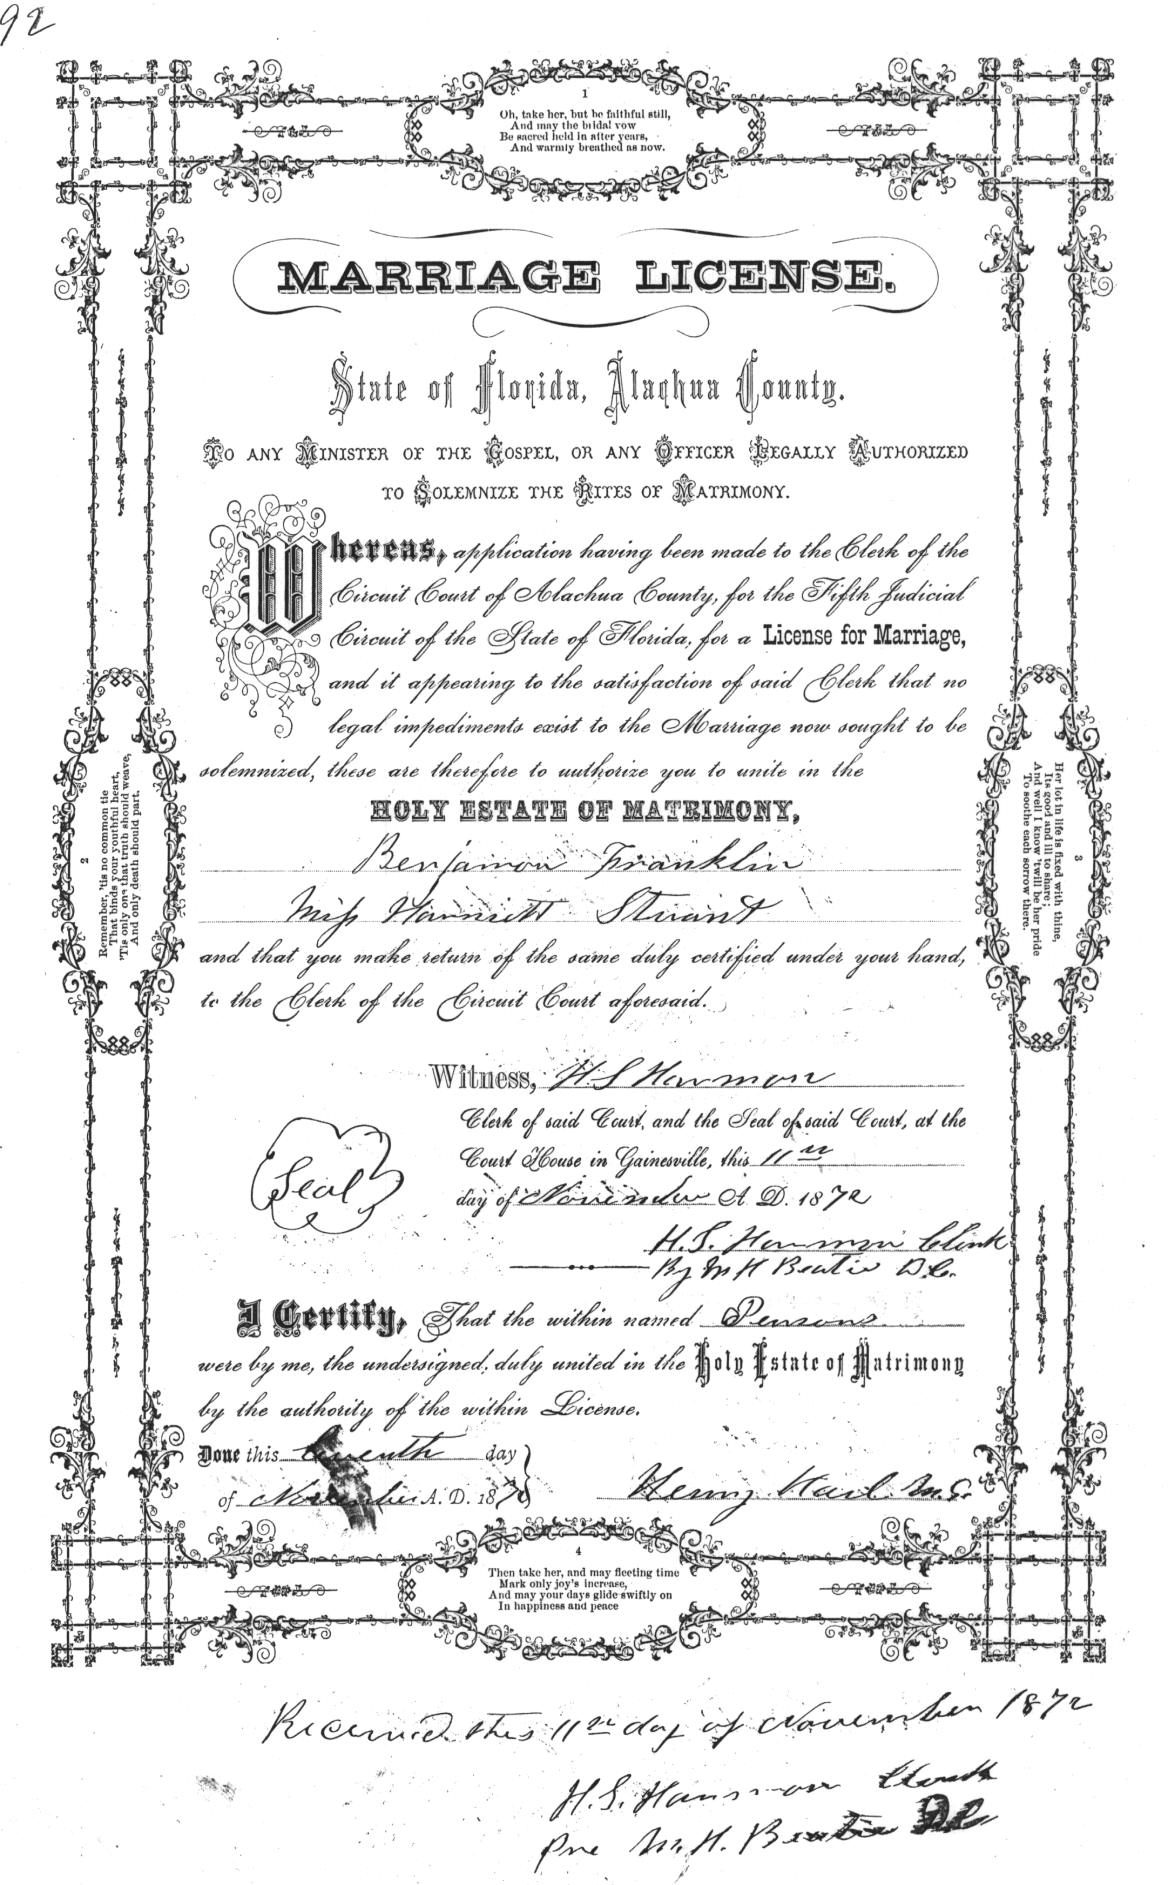 92
1
Oh, take her, but be faithful still,
And may the bridal vow
Be sacred held in after years,
And warmly breathed as now.
MARRIAGE LICENSE.
State of Florida, Alachua County.
TO ANY MINISTER OF THE GOSPEL, OR ANY OFFICER LEGALLY AUTHORIZED
TO SOLEMNIZE THE RITES OF MATRIMONY.
Whereas, application having been made to the Clerk of the
Circuit Court of Alachua County, for the Fifth Judicial
Circuit of the State of Florida, for a License for Marriage,
and it appearing to the satisfaction of said Clerk that no
legal impediments exist to the Marriage now sought to be
solemnized, these are therefore to authorize you to unite in the
HOLY ESTATE OF MATRIMONY,
Benjamon Franklin
Miss Harriett Stuart
and that you make return of the same duly certified under your hand,
to the Clerk of the Circuit Court aforesaid.
2
Remember, 'tis no common tie
That binds your youthful heart,
'Tis only one that truth should weave,
And only death should part.
3
Her lot in life is fixed with thine,
Its good and ill to share;
And well I know 'twill be her pride
To soothe each sorrow there.
Witness, H S Harmon
Clerk of said Court, and the Seal of said Court, at the
Court House in Gainesville, this 11th
day of November A. D. 1872
Seal
H. S. Harmon Clerk
By M H Beatie D. C.
I Certify, That the within named Persons
were by me, the undersigned, duly united in the Holy Estate of Matrimony
by the authority of the within License.
Done this day
of November A. D. 187
Henry
4
Then take her, and may fleeting time
Mark only joy's increase,
And may your days glide swiftly on
In happiness and peace
Received this 11th day of November 1872
H. S. Harmon Clerk
M. H. Beatie D C